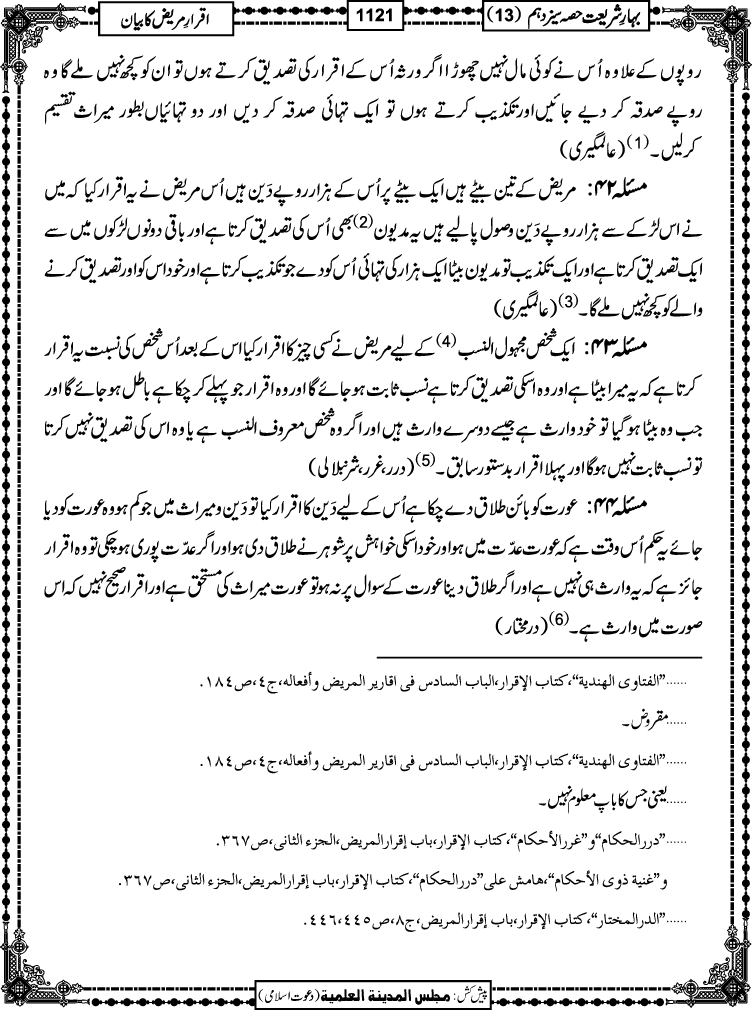 بہارِ شریعت حصہ سیزدہم (13)
1121
اقرارِ مریض کا بیان
روپوں کے علاوہ اُس نے کوئی مال نہیں چھوڑا اگر ورثہ اُس کے اقرار کی تصدیق کرتے ہوں تو ان کو کچھ نہیں ملے گا وہ
روپے صدقہ کر دیے جائیں اور تکذیب کرتے ہوں تو ایک تہائی صدقہ کر دیں اور دو تہائیاں بطور میراث تقسیم
کرلیں۔(1) (عالمگیری)
مسئلہ ۴۲: مریض کے تین بیٹے ہیں ایک بیٹے پر اُس کے ہزار روپے دَین ہیں اُس مریض نے یہ اقرار کیا کہ میں
نے اس لڑکے سے ہزار روپے دَین وصول پالیے ہیں یہ مدیون(2) بھی اُس کی تصدیق کرتا ہے اور باقی دونوں لڑکوں میں سے
ایک تصدیق کرتا ہے اور ایک تکذیب تو مدیون بیٹا ایک ہزار کی تہائی اُس کو دے جو تکذیب کرتا ہے اور خود اس کو اور تصدیق کرنے
والے کو کچھ نہیں ملے گا۔(3) (عالمگیری)
مسئلہ ۴۳: ایک شخص مجہول النسب(4) کے لیے مریض نے کسی چیز کا اقرار کیا اس کے بعد اُس شخص کی نسبت یہ اقرار
کرتا ہے کہ یہ میرا بیٹا ہے اور وہ اسکی تصدیق کرتا ہے نسب ثابت ہو جائے گا اور وہ اقرار جو پہلے کر چکا ہے باطل ہو جائے گا اور
جب وہ بیٹا ہو گیا تو خود وارث ہے جیسے دوسرے وارث ہیں اور اگر وہ شخص معروف النسب ہے یا وہ اس کی تصدیق نہیں کرتا
تو نسب ثابت نہیں ہوگا اور پہلا اقرار بدستور سابق۔(5) (درر، غرر، شرنبلالی)
مسئلہ ۴۴: عورت کو بائن طلاق دے چکا ہے اُس کے لیے دَین کا اقرار کیا تو دَین و میراث میں جو کم ہو وہ عورت کو دیا
جائے یہ حکم اُس وقت ہے کہ عورت عدّت میں ہو اور خود اسکی خواہش پر شوہر نے طلاق دی ہو اور اگر عدّت پوری ہو چکی تو وہ اقرار
جائز ہے کہ یہ وارث ہی نہیں ہے اور اگر طلاق دینا عورت کے سوال پر نہ ہو تو عورت میراث کی مستحق ہے اور اقرار صحیح نہیں کہ اس
صورت میں وارث ہے۔(6) (درمختار)
......”الفتاوی الھندیة“، کتاب الإقرار، الباب السادس فی اقاریر المریض وأفعالہ، ج٤، ص١٨٤.
......مقروض۔
......”الفتاوی الھندیة“، کتاب الإقرار، الباب السادس فی اقاریر المریض وأفعالہ، ج٤، ص١٨٤.
......یعنی جس کا باپ معلوم نہیں۔
......”دررالحکام“ و ”غررالأحکام“، کتاب الإقرار، باب إقرارالمریض، الجزء الثانی، ص٣٦٧.
و”غنیة ذوی الأحکام“، ھامش علی”دررالحکام“، کتاب الإقرار، باب إقرارالمریض، الجزء الثانی، ص٣٦٧.
......”الدرالمختار“، کتاب الإقرار، باب إقرارالمریض، ج٨، ص٤٤٥،٤٤٦.
پیش کش: مجلس المدینة العلمیة (دعوت اسلامی)